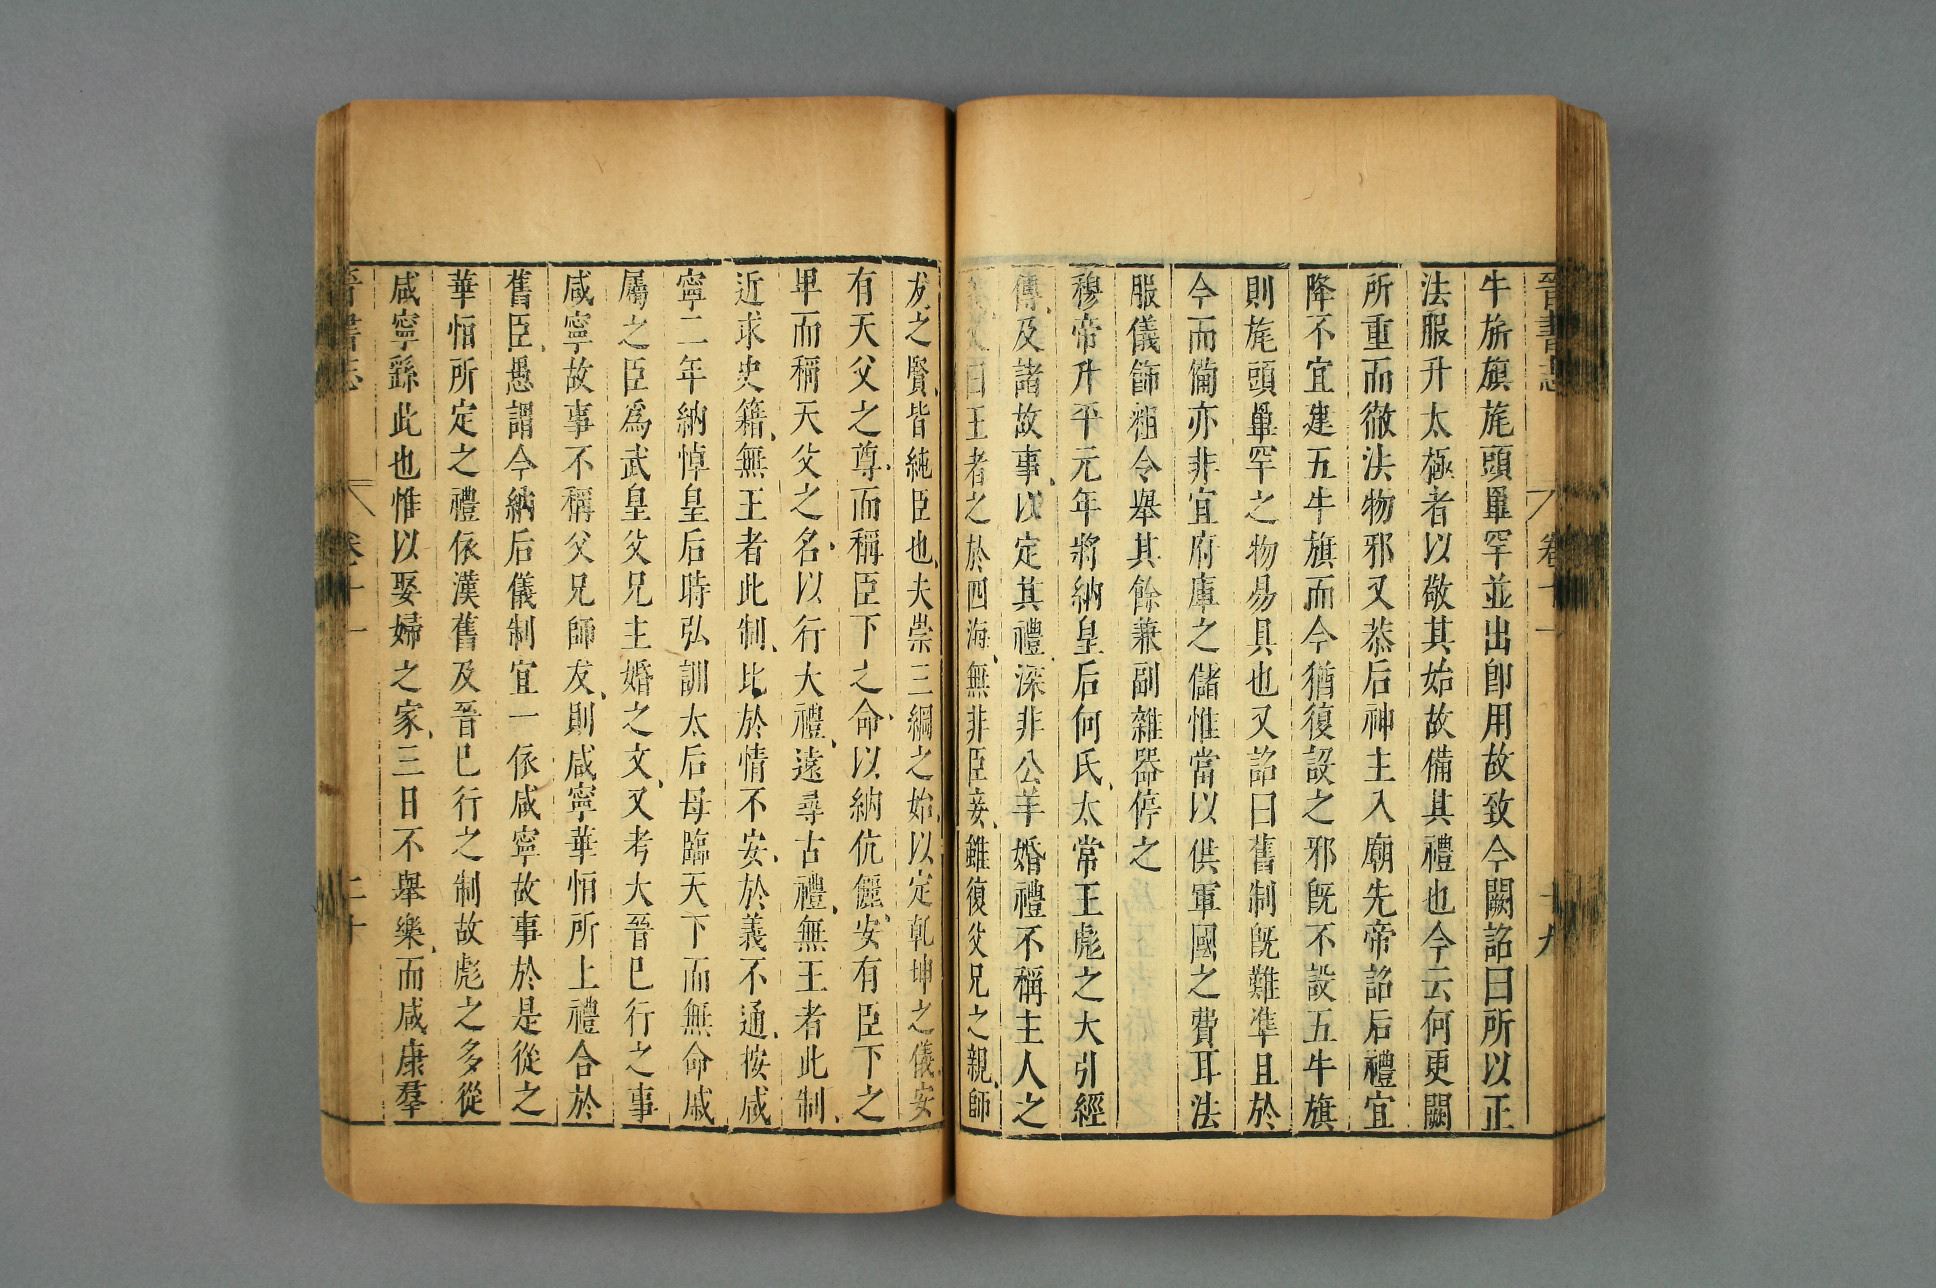 晉書志 卷十一 十九
牛旂旗旄頭罼罕並出卽用故致今闕詔曰所以正
法服升太極者以敬其始故備其禮也今云何更闕
所重而徹法物邪又恭后神主入廟先帝詔后禮宜
降不宜建五牛旗而今猶復設之邪旣不設五牛旗
則旄頭罼罕之物易具也又詔曰舊制旣難準且於
今而備亦非宜府庫之儲惟當以供軍國之費耳法
服儀飾粗令舉其餘兼副雜器停之
穆帝升平元年將納皇后何氏太常王彪之大引經
傳及諸故事以定其禮深非公羊婚禮不稱主人之
義又曰王者之於四海無非臣妾雖復父兄之親師
友之賢皆純臣也夫崇三綱之始以定乹坤之儀安
有天父之尊而稱臣下之命以納伉儷安有臣下之
卑而稱天父之名以行大禮遠尋古禮無王者此制
近求史籍無王者此制比於情不安於義不通按咸
寧二年納悼皇后時弘訓太后母臨天下而無命戚
屬之臣爲武皇父兄主婚之文又考大晉已行之事
咸寧故事不稱父兄師友則咸寧華恒所上禮合於
舊臣愚謂今納后儀制宜一依咸寧故事於是從之
華恒所定之禮依漢舊及晉已行之制故彪之多從
咸寧繇此也惟以娶婦之家三日不舉樂而咸康羣
晉書志 卷十一 二十